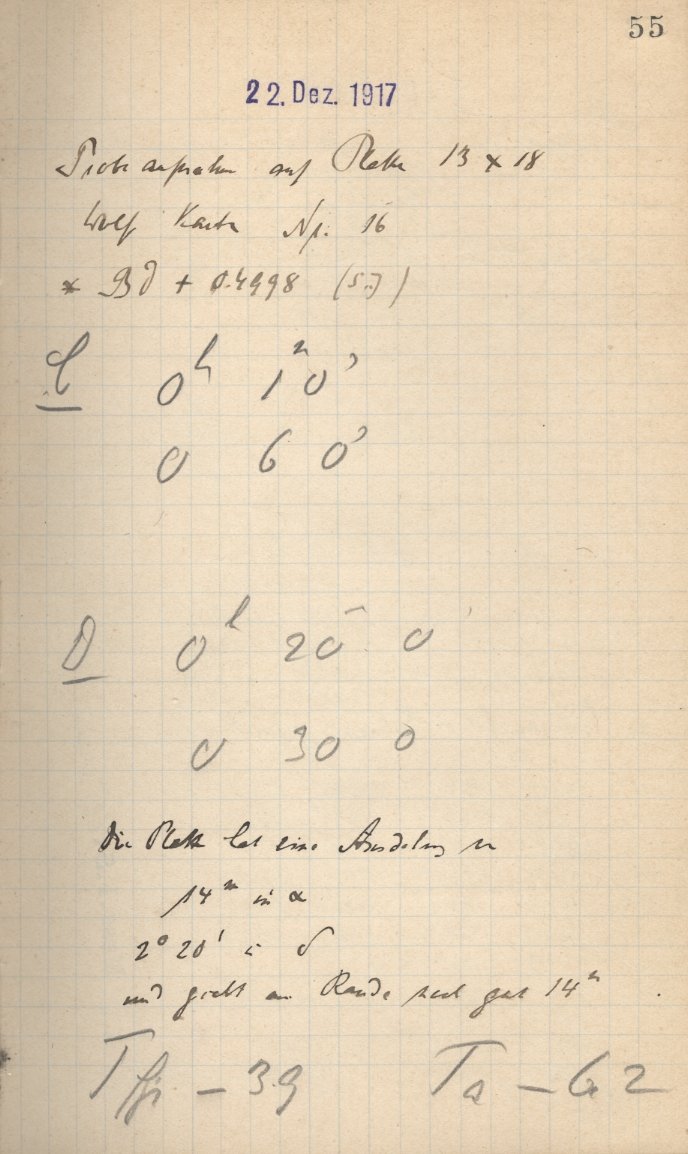 55
22. Dez. 1917
Probeaufnahme auf Platte 13 x 18
Wolf Karte Nr. 16
* BD + 0.4998 (5.7)
C 0h 1m 0s
0 6 0s
D 0h 20m 0s
0 30 0
Die Platte hat eine Ausdehnung von
14m in α
2° 20' in δ
und giebt am Rande noch gut 14m
T - 3.9 Ta - 6.2